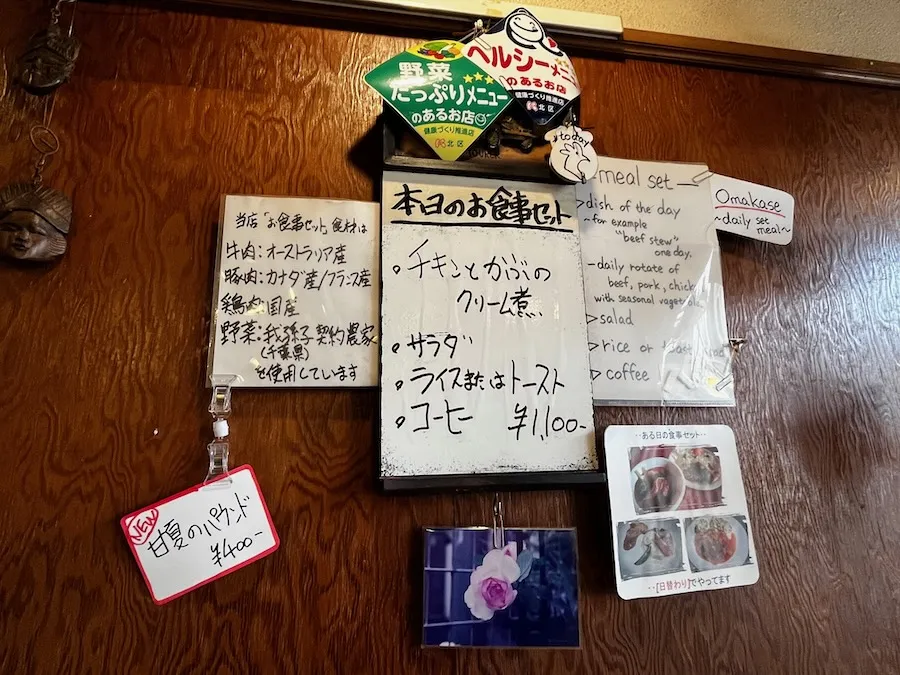 野菜
たっぷりメニュー
のあるお店
健康づくり推進店
北区
ヘルシーメニュー
のあるお店
健康づくり推進店
北区
today
当店「お食事セット」食材は
牛肉:オーストラリア産
豚肉:カナダ産/フランス産
鶏肉:国産
野菜:我孫子契約農家
(千葉県)
を使用しています
本日のお食事セット
・チキンとかぶの
クリーム煮
・サラダ
・ライスまたはトースト
・コーヒー ¥1,100-
meal set
dish of the day
~for example
"beef stew"
one day.
-daily rotate of
beef, pork, chick
with seasonal vegetable
salad
rice or
coffee
Omakase
~daily set
meal~
NEW
甘夏のパウンド
¥400-
‥ある日の食事セット‥
‥[日替わり]でやってます